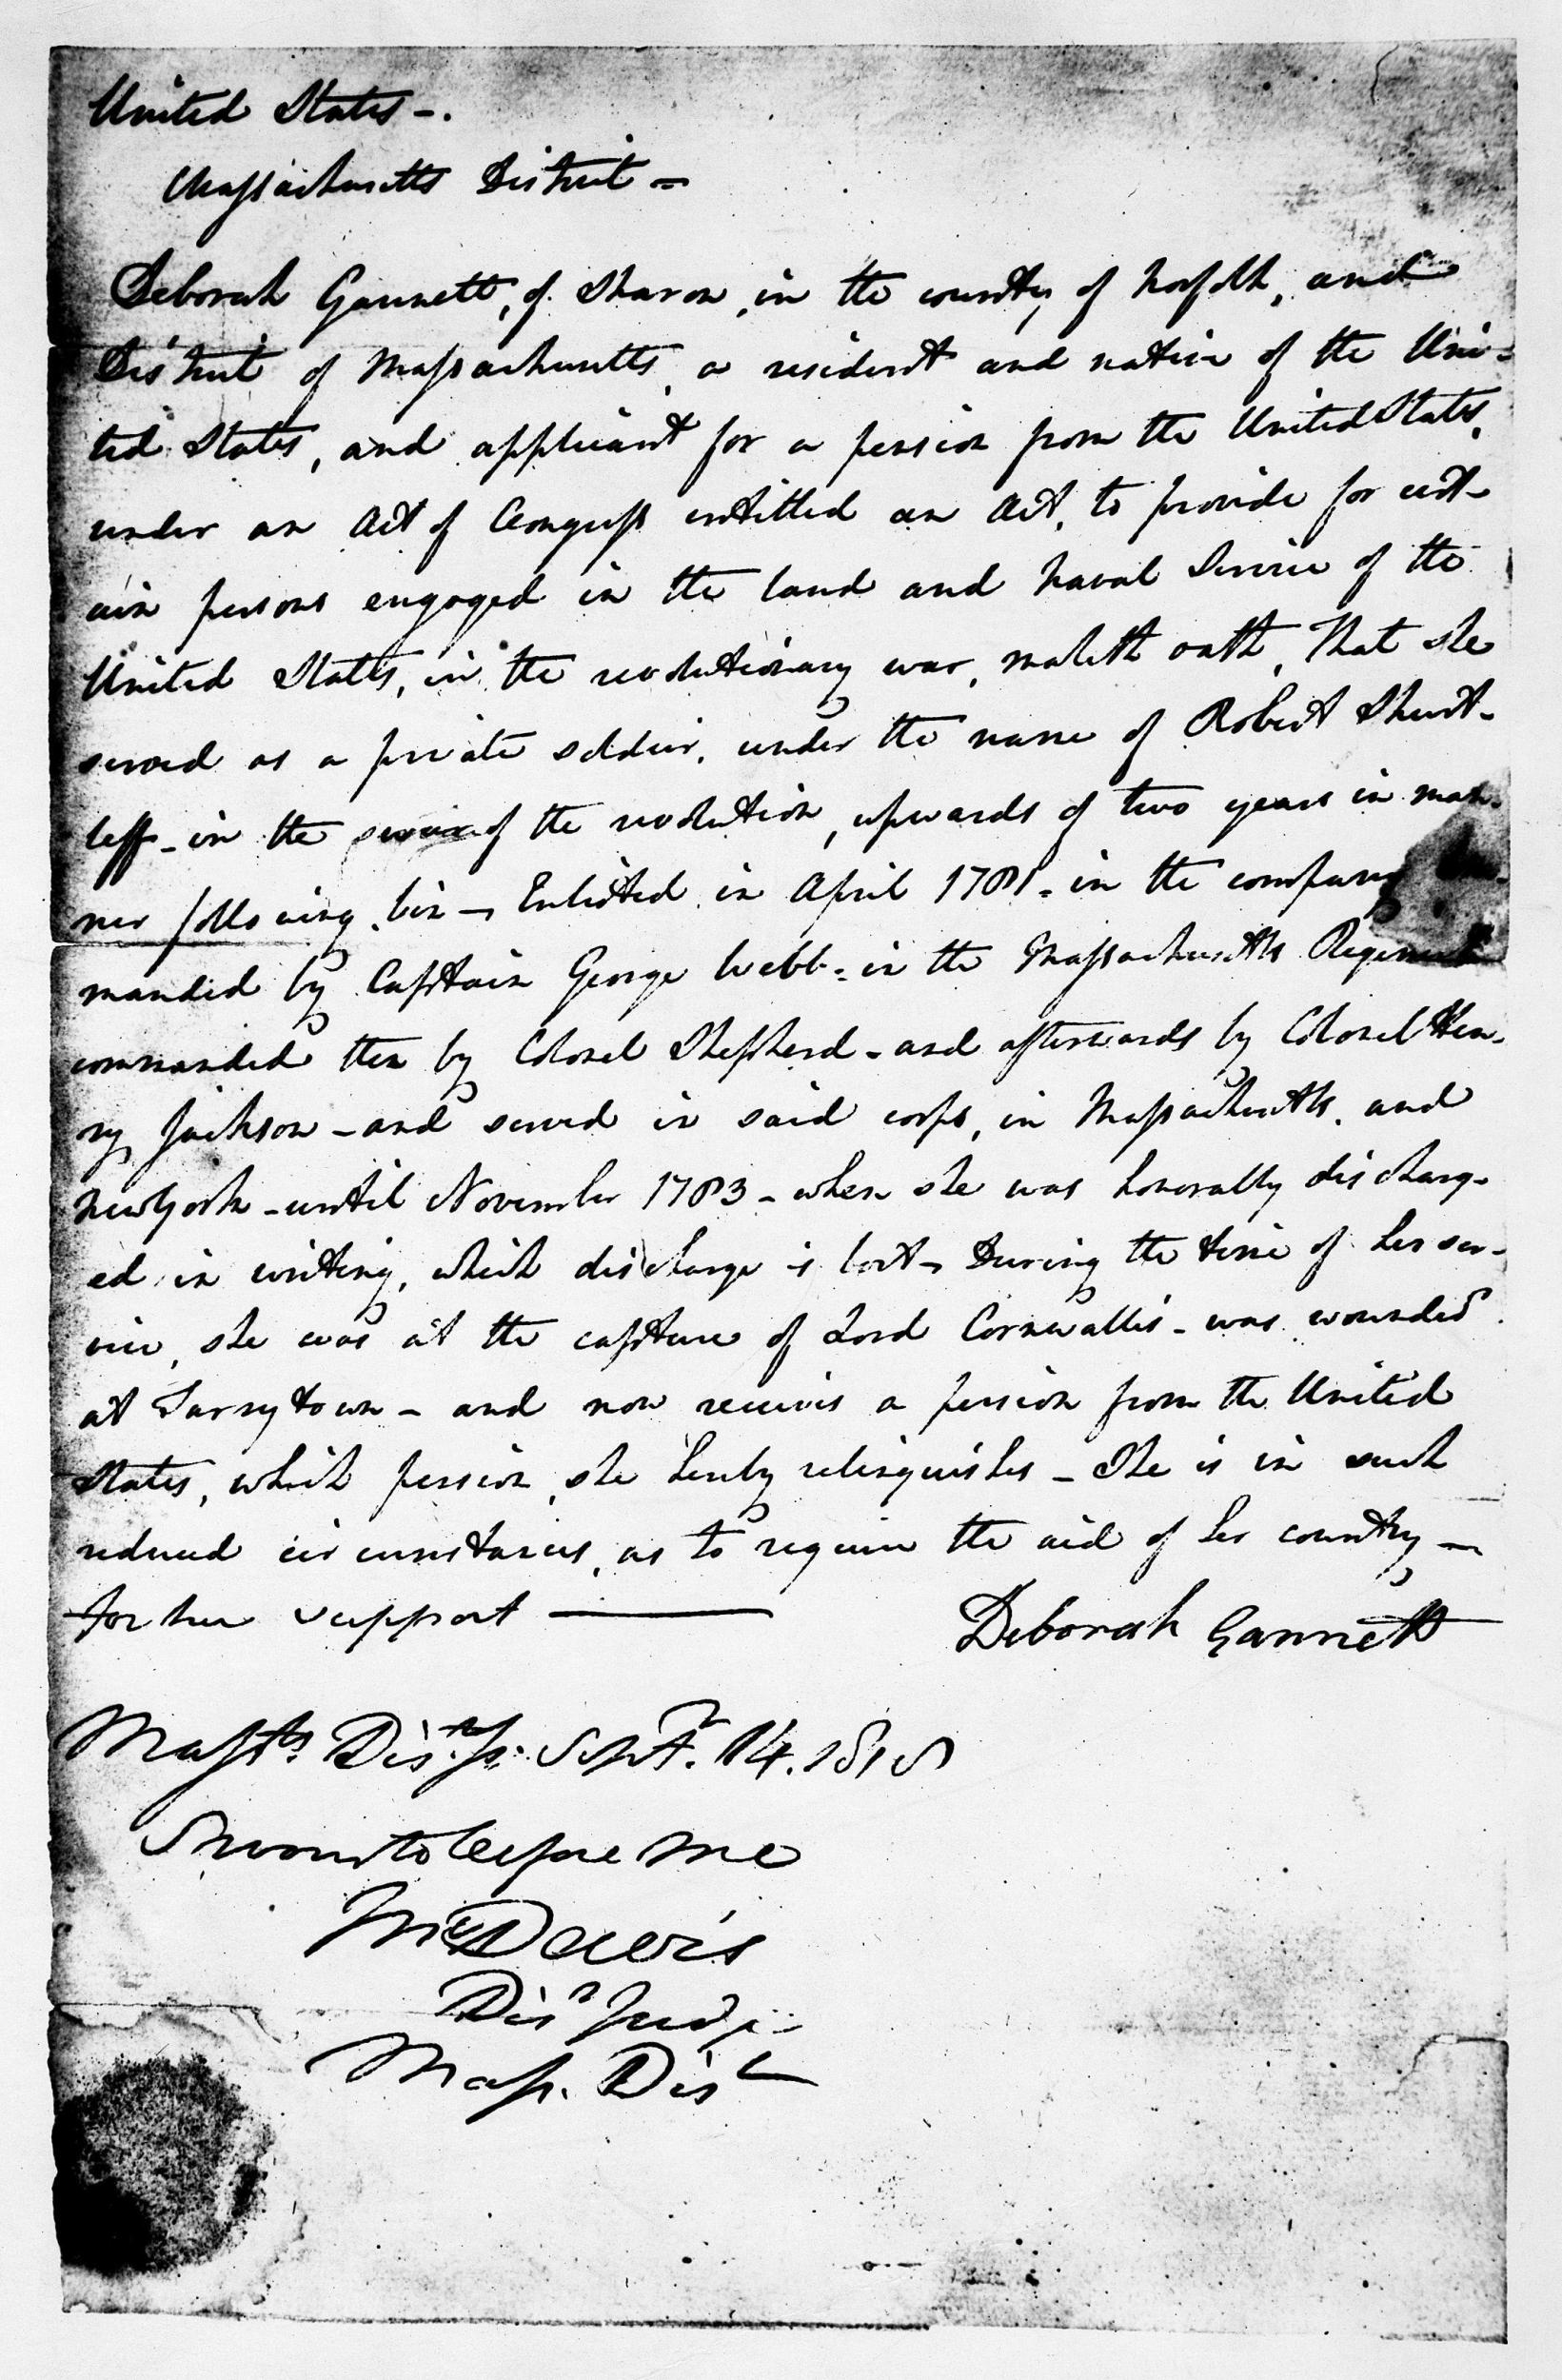 United States -.
Massachusetts District -
Deborah Gannett, of Sharon, in the county of Norfolk, and
District of Massachusetts, a resident and native of the Uni-
ted States, and applicant for a pension from the United States,
under an Act of Congress entitled an Act, to provide for cert-
ain persons engaged in the land and naval Service of the
United States, in the revolutionary war, maketh oath, That she
served as a private soldier, under the name of Robert Shurt-
leff - in the service of the revolution, upwards of two years in man-
ner following. viz - Enlisted in April 1781 - in the company
manded by Captain George Webb - in the Massachusetts Regiment
commanded then by Colonel Shepherd - and afterwards by Colonel Hen-
ry Jackson - and served in said corps, in Massachusetts, and
New York - until November 1783 - when she was honorably discharg-
ed in writing, which discharge is lost - During the time of her ser-
vice, she was at the capture of Lord Cornwallis - was wounded
at Tarrytown - and now receives a pension from the United
States, which pension, she hereby relinquishes - She is in such
reduced circumstances, as to require the aid of her country -
for her support -
Deborah Gannett
Masstts Dist. Sept. 14. 1818
Sworn to before me
Davis
Dist Judge
Mass. Dist